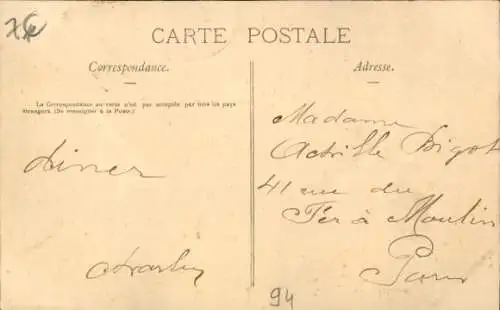 CARTE POSTALE
Correspondance.
Adresse.
La Correspondance au recto n'est pas acceptée par tous les pays
étrangers. (Se renseigner à la Poste.)
Madame
Achille Bigot
41 rue du
Fer à Moulin
Paris
94